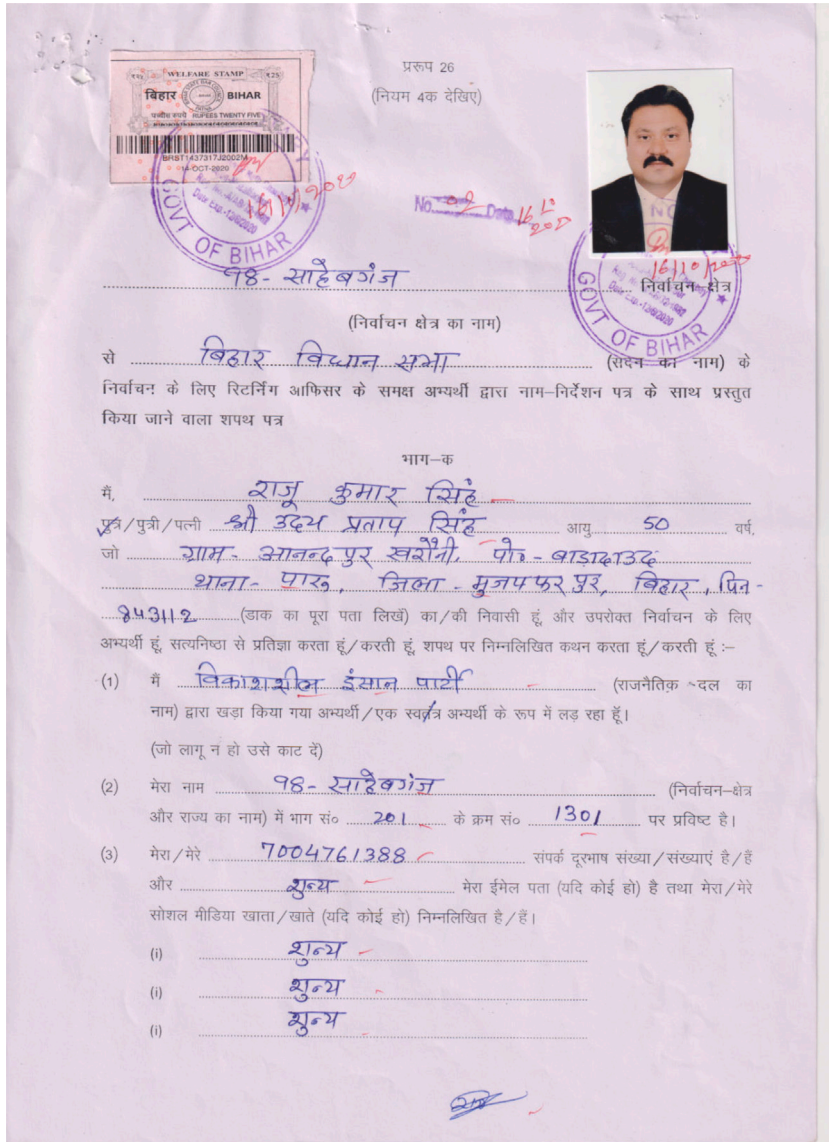 WELFARE STAMP
बिहार BIHAR
पच्चीस रुपये RUPEES TWENTY FIVE
BRST1437317J2002M
14-OCT-2020
GOVT OF BIHAR
16/10/2020
प्ररूप 26
(नियम 4क देखिए)
No. 02 Date 16/10/2020
16/10/2020
GOVT OF BIHAR
98- साहेबगंज निर्वाचन क्षेत्र
(निर्वाचन क्षेत्र का नाम)
से बिहार विधान सभा (सदन का नाम) के
निर्वाचन के लिए रिटर्निंग आफिसर के समक्ष अभ्यर्थी द्वारा नाम–निर्देशन पत्र के साथ प्रस्तुत
किया जाने वाला शपथ पत्र
भाग–क
मैं, राजू कुमार सिंह
पुत्र/पुत्री/पत्नी श्री उदय प्रताप सिंह आयु 50 वर्ष,
जो ग्राम- आनन्दपुर खरौनी, पो०- बाड़ादाउद
थाना- पारू, जिला- मुजफ्फरपुर, बिहार, पिन-
843112 (डाक का पूरा पता लिखें) का/की निवासी हूं, और उपरोक्त निर्वाचन के लिए
अभ्यर्थी हूं, सत्यनिष्ठा से प्रतिज्ञा करता हूं/करती हूं, शपथ पर निम्नलिखित कथन करता हूं/करती हूं :–
(1) मैं विकाशशील इंसान पार्टी (राजनैतिक दल का
नाम) द्वारा खड़ा किया गया अभ्यर्थी/एक स्वतंत्र अभ्यर्थी के रूप में लड़ रहा हूँ।
(जो लागू न हो उसे काट दें)
(2) मेरा नाम 98- साहेबगंज (निर्वाचन–क्षेत्र
और राज्य का नाम) में भाग सं० 201 के क्रम सं० 1301 पर प्रविष्ट है।
(3) मेरा/मेरे 7004761388 संपर्क दूरभाष संख्या/संख्याएं है/हैं
और शुन्य मेरा ईमेल पता (यदि कोई हो) है तथा मेरा/मेरे
सोशल मीडिया खाता/खाते (यदि कोई हो) निम्नलिखित है/हैं।
(i) शुन्य
(i) शुन्य
(i) शुन्य